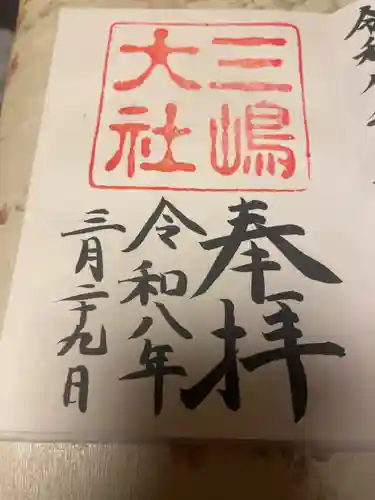 三嶋
大社
奉拝
令和八年
三月二十九日
令和八年